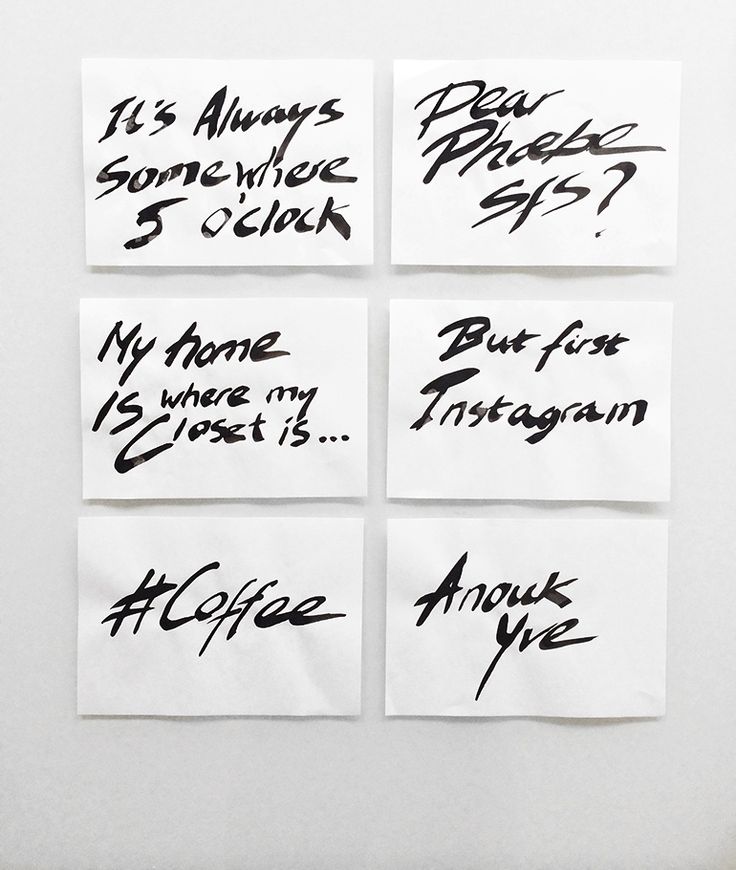 It's Always
somewhere
5 o'clock
Dear
Phoebe
sfs?
My home
Is where my
Closet is...
But first
Instagram
#Coffee
Anouk
Yve